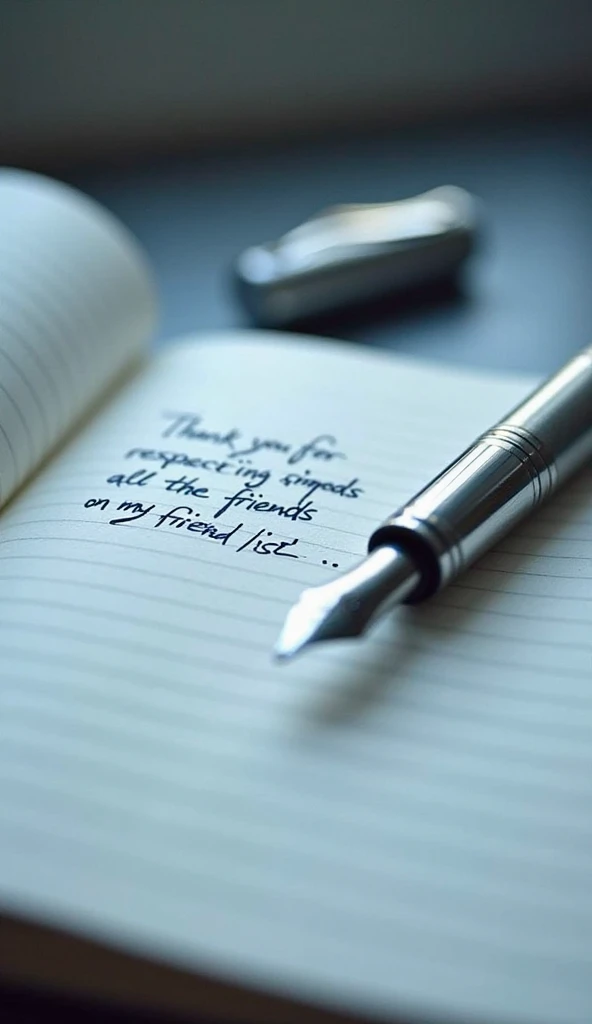 Thank you for
respecting
all the friends
on my friend list ..